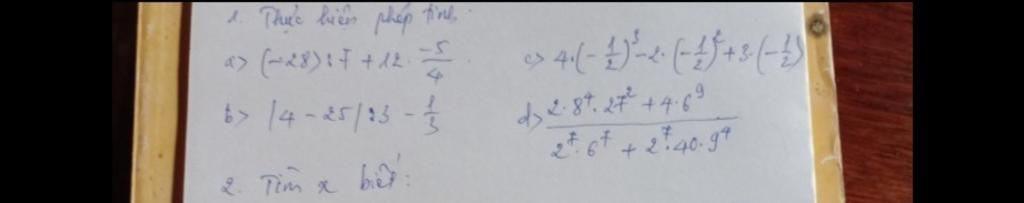 1. Thực hiện phép tính.
a> (-28):7 + 12 · -5/4 .
c> 4·(-1/2)^3 - 2·(-1/2)^2 + 3·(-1/2)
b> |4 - 25|:3 - 1/3
d> (2·8^4·27^2 + 4·6^9)/(2^7·6^7 + 2^7·40·9^4)
2. Tìm x biết: